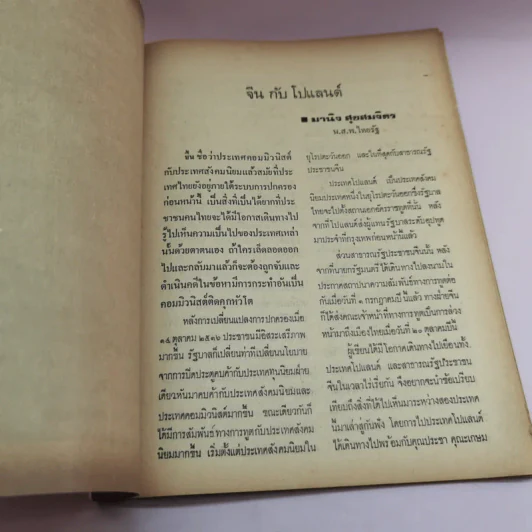 จีน กับ โปแลนด์
■ มานิจ สุขสมจิตร
น.ส.พ.ไทยรัฐ
ขึ้น ชื่อว่าประเทศคอมมิวนิสต์
กับประเทศสังคมนิยมแล้วสมัยที่ประ
เทศไทยยังอยู่ภายใต้ระบบการปกครอง
ก่อนหน้านี้ เป็นสิ่งที่เป็นได้ยากที่ประ
ชาชนคนไทยจะได้มีโอกาสเดินทางไป
รู้ไปเห็นความเป็นไปของประเทศเหล่า
นั้นด้วยตาตนเอง ถ้าใครเล็ดลอดออก
ไปและกลับมาแล้วก็จะต้องถูกจับและ
ดำเนินคดีในข้อหามีการกระทำอันเป็น
คอมมิวนิสต์ติดคุกหัวโต
หลังการเปลี่ยนแปลงการปกครองเมื่อ
๑๔ ตุลาคม ๒๕๑๖ ประชาชนมีอิสระเสรีภาพ
มากขึ้น รัฐบาลก็เปลี่ยนท่าทีเปลี่ยนนโยบาย
จากการปิดประตูคบค้ากับประเทศทุนนิยมฝ่าย
เดียวหันมาคบค้ากับประเทศสังคมนิยมและ
ประเทศคอมมิวนิสต์มากขึ้น ขณะเดียวกันก็
ได้มีการสัมพันธ์ทางการทูตกับประเทศสังคม
นิยมมากขึ้น เริ่มตั้งแต่ประเทศสังคมนิยมใน
ยุโรปตะวันออก และในที่สุดกับสาธารณรัฐ
ประชาชนจีน
ประเทศโปแลนด์ เป็นประเทศสังคม
นิยมประเทศหนึ่งในยุโรปตะวันออกซึ่งรัฐบาล
ไทยจะไปตั้งสถานเอกอัครราชทูตที่นั่น หลัง
จากที่โปแลนด์ส่งผู้แทนรัฐบาลระดับอุปทูต
มาประจำที่กรุงเทพก่อนหน้านี้แล้ว
ส่วนสาธารณรัฐประชาชนจีนนั้น หลัง
จากที่นายกรัฐมนตรี ได้เดินทางไปลงนามใน
ประกาศสถาปนาความสัมพันธ์ทางการทูตต่อ
กันเมื่อวันที่ ๑ กรกฎาคมปีนี้แล้ว ทางฝ่ายจีน
ก็ได้ส่งคณะเจ้าหน้าที่ทางการทูตเป็นการล่วง
หน้ามาถึงเมืองไทยเมื่อวันที่ ๒๐ ตุลาคมปีนี้
ผู้เขียนได้มีโอกาสเดินทางไปเยือนทั้ง
ประเทศโปแลนด์ และสาธารณรัฐประชาชน
จีนในเวลาไร่เรี่ยกัน จึงอยากจะนำข้อเปรียบ
เทียบถึงสิ่งที่ได้ไปเห็นมาระหว่างสองประเทศ
นี้มาเล่าสู่กันฟัง โดยการไปประเทศโปแลนด์
ได้เดินทางไปพร้อมกับคุณประชา คุณะเกษม